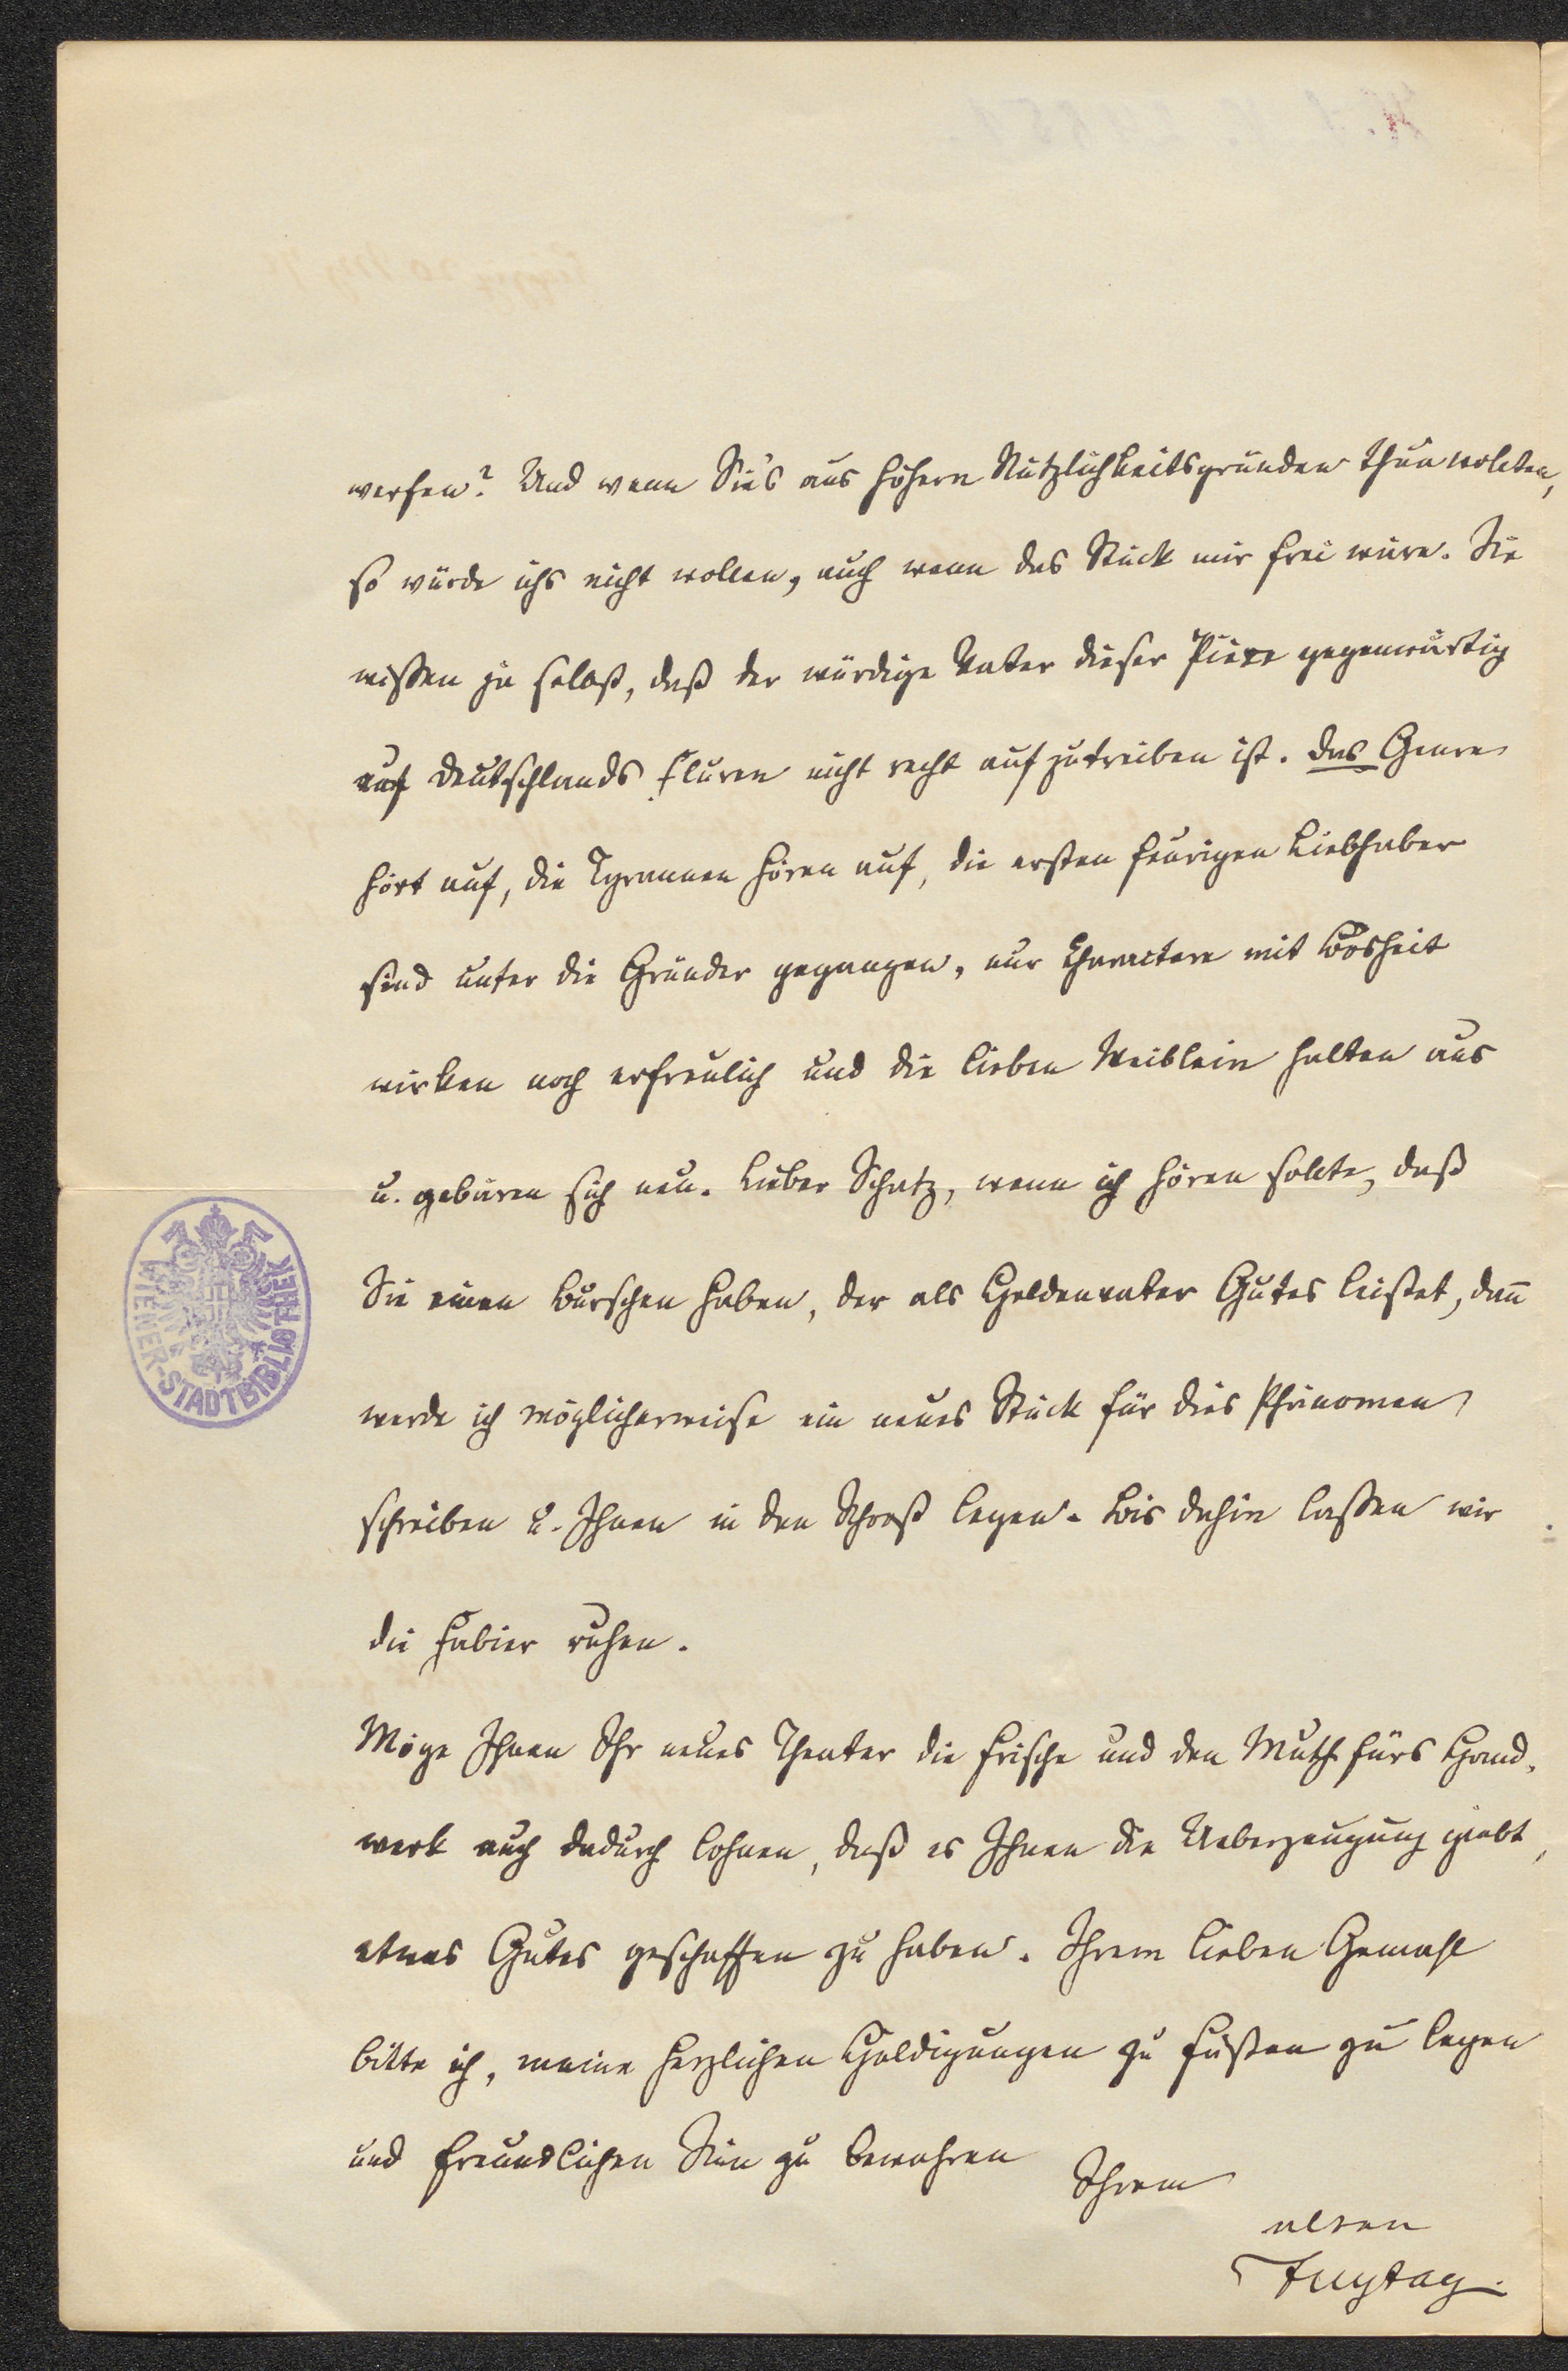 werfen? Und wenn Sie's aus höhern Nützlichkeitsgründen thun wollten,
so würde ichs nicht wollen, auch wenn das Stück mir frei wäre. Sie
wissen ja selbst, daß der würdige Vater dieser Piece gegenwärtig
auf Deutschlands Fluren nicht recht aufzutreiben ist. Das Genre
hört auf, die Tyrannen hören auf, die ersten feurigen Liebhaber
sind unter die Gründer gegangen, nur Charactere mit Bosheit
wirken noch erfreulich und die lieben Weiblein halten aus
u. gebären sich neu. Lieber Schatz, wenn ich hören sollte, daß
Sie einen Burschen haben, der als Heldenvater Gutes leistet, dann
werde ich möglicherweise ein neues Stück für dies Phänomen
schreiben u. Ihnen in den Schooß legen. Bis dahin lassen wir
die Fabier ruhen.
Möge Ihnen Ihr neues Theater die Frische und den Muth fürs Hand-
werk auch dadurch lohnen, daß es Ihnen die Ueberzeugung giebt,
etwas Gutes geschaffen zu haben. Ihrem lieben Gemahl
bitte ich, meine herzlichen Huldigungen zu Füßen zu legen
und freundlichen Sinn zu bewahren
Ihrem
alten
Freytag.
WIENER-STADTBIBLIOTHEK